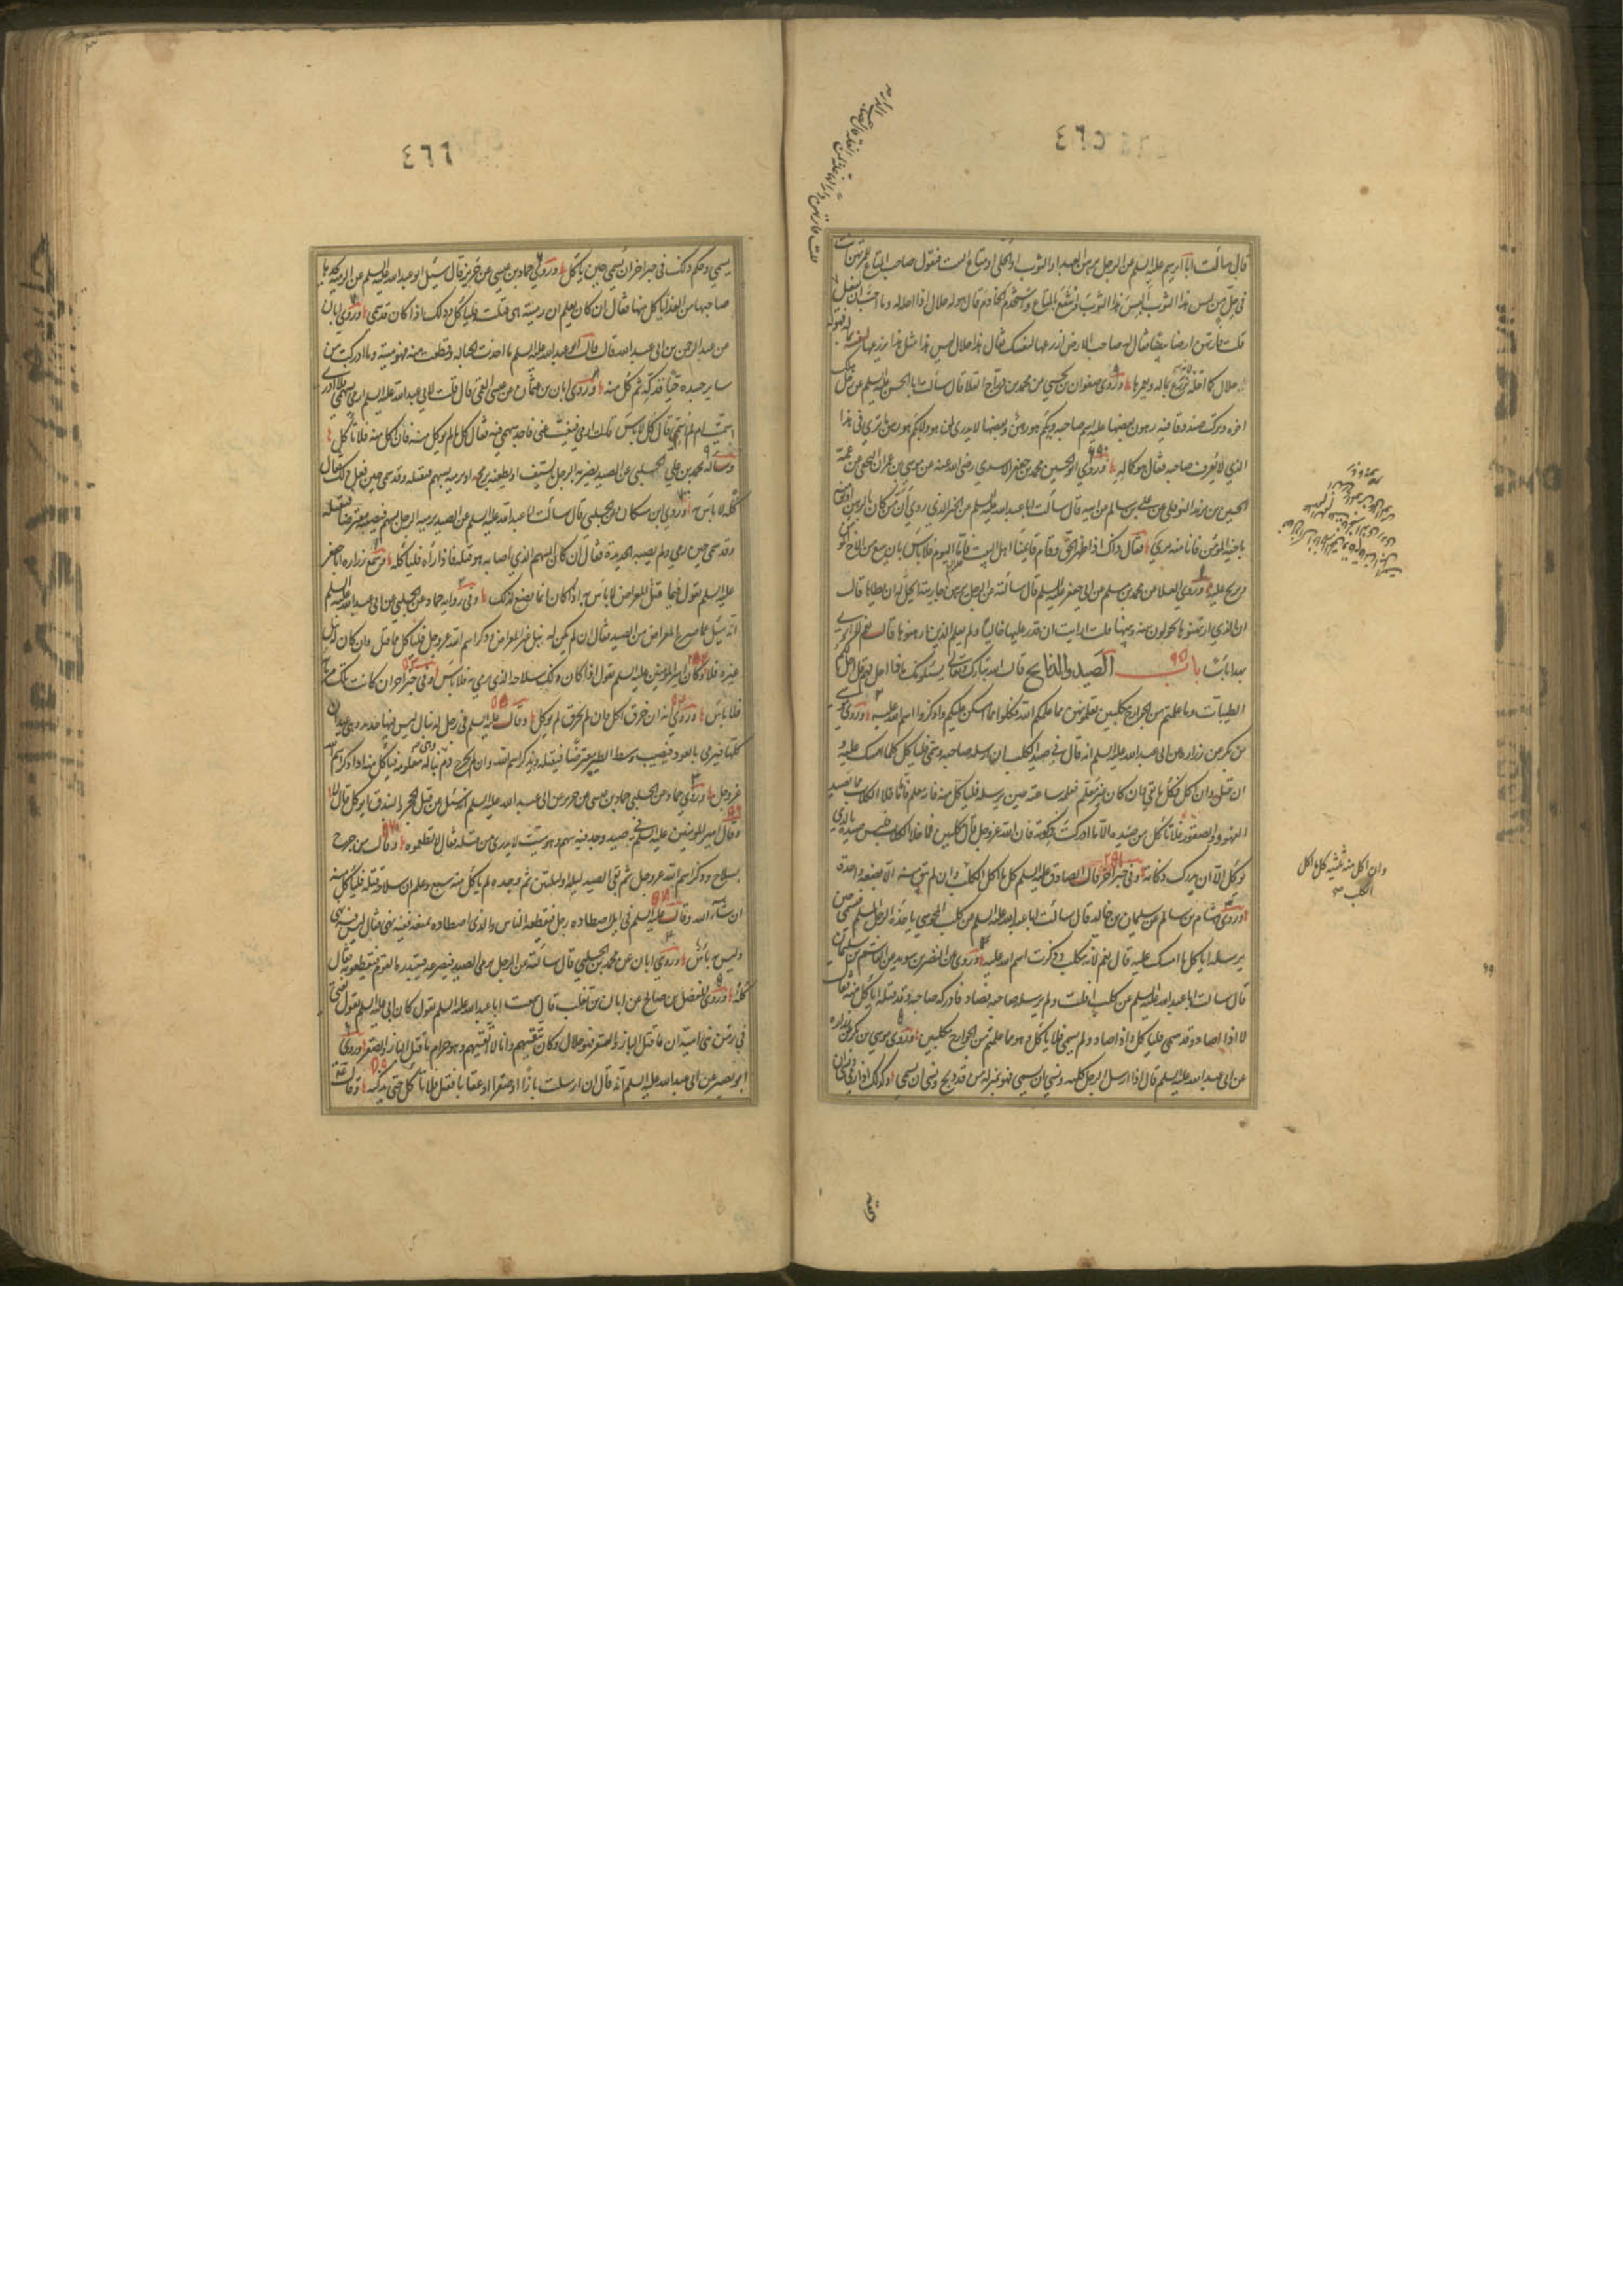 ٤٦٥
قال سألت ابا ابرهيم عليه السلم عن الرجل يرهن العبد او الثوب او الحلى او متاع البيت فيقول صاحب المتاع للمرتهن انت
في حل من لبس هذا الثوب البس الثوب وانتفع بالمتاع واستخدم الخادم قال هو له حلال اذا احله له وما احب ان يفعل
قلت فارتهن ارضا بيضا فقال له صاحب الارض ازرعها لنفسك فقال هذا حلال ليس هذا مثل هذا يزرعها لنفسه بماله فهو له
حلال كما احله لانه يزرع بماله ويعمرها وروى صفوان بن يحيى عن محمد بن رباح القلا قال سألت ابا الحسن عليه السلم عن رجل هلك
اخوه وترك صندوقا فيه رهون بعضها عليه اسم صاحبه وبكم هو رهن وبعضها لا يدرى لمن هو ولا بكم هو رهن ما ترى في هذا
الذي لا يعرف صاحبه فقال هو كماله وروى ابو الحسين محمد بن جعفر الاسدي رضى الله عنه عن موسى بن عمران النخعي عن عمه
الحسين بن يزيد النوفلي عن علي بن سالم عن ابيه قال سألت ابا عبد الله عليه السلم عن الخبر الذي روي ان من كان بالرهن اوثق منه
باخيه المؤمن فانا منه بريء فقال ذلك اذا ظهر الحق وقام قايمنا اهل البيت فاما اليوم فلا باس بان يبيع من الاخ المؤمن
ويربح عليه وروى العلا عن محمد بن مسلم عن ابي جعفر عليه السلم قال سألته عن الرجل يرهن جاريته ايحل له ان يطاها قال
ان الذي ارتهنوها يحولون بينه وبينها قلت ارايت ان قدر عليها خاليا ولم يعلم الذين ارتهنوها قال نعم لا ارى
بهذا باسا باب الصيد والذبايح قال الله تبارك وتعالى يسئلونك ماذا احل لهم قل احل لكم
الطيبات وما علمتم من الجوارح مكلبين تعلمونهن مما علمكم الله فكلوا مما امسكن عليكم واذكروا اسم الله عليه وروى موسى
بن بكر عن زرارة عن ابي عبد الله عليه السلم انه قال في صيد الكلب ان ارسله صاحبه وسمى فلياكل كلما امسك عليه و
ان قتل وان اكل فكل ما بقي وان كان غير معلم فعلمه ساعته حين يرسله فلياكل منه فانه معلم فاما ما خلا الكلاب مما تصيد
الفهود والصقور فلا تاكل من صيده الا ما ادركت ذكوته فان الله عز وجل قال مكلبين فما خلا الكلاب فليس صيده بالذي
يوكل الا ان يدرك ذكاته وفي خبر آخر قال الصادق عليه السلم كل ما اكل الكلب وان لم يبق منه الا بضعة واحدة
وروى هشام بن سالم عن سليمان بن خالد قال سألت ابا عبد الله عليه السلم عن كلب المجوسي ياخذه الرجل المسلم فيسمى حين
يرسله اياكل ما امسك عليه قال نعم لانه مكلب وذكرت اسم الله عليه وروى عن النضر بن سويد عن القاسم بن سليمان
قال سالت ابا عبد الله عليه السلم عن كلب افلت ولم يرسله صاحبه فصاد فادركه صاحبه وقد قتله اياكل منه فقال
لا اذا صاد وقد سمى فلياكل واذا صاد ولم يسم فلا ياكل وهو مما علمتم من الجوارح مكلبين وروى موسى بن بكر عن زرارة
عن ابي عبد الله عليه السلم قال اذا ارسل الرجل كلبه ونسي ان يسمى فهو بمنزلة من قد ذبح ونسي ان يسمى وكذلك اذا رمى ونسي ان
وان اكل منه ثلثيه كل ما اكل
الكلب
٤٦٦
يسمى وحكم ذلك في خبر اخر ان يسمى حين ياكل وروى حماد بن عيسى عن حريز قال سئل ابو عبد الله عليه السلم عن الرمية يجدها
صاحبها من الغد اياكل منها فقال ان كان يعلم ان رميته هي قتلت فلياكل وذلك اذا كان قد سمى وروى ابان
عن عبد الرحمن بن ابي عبد الله قال قال ابو عبد الله عليه السلم ما اخذت الحباله وقطعت منه فهو ميتة وما ادركت من
ساير جسده حيا فذكه ثم كل منه وروى ابان بن عثمان عن عيسى القمي قال قلت لابي عبد الله عليه السلم ارمى بسهمي فلا ادرى
اسميت ام لم اسم قال كل لا باس قلت ارمى فيغيب عني فاجد سهمي فيه فقال كل ما لم يوكل منه فان اكل منه فلا تاكل
وساله محمد بن علي الحلبي عن الصيد يضربه الرجل بالسيف او يطعنه برمحه او يرميه بسهم فيقتله وقد سمى حين فعل ذلك فقال
كله لا باس به وروى ابن مسكان عن الحلبي قال سألت ابا عبد الله عليه السلم عن الصيد يرميه الرجل بسهم فيصيبه معترضا فيقتله
وقد سمى حين رمى ولم يصبه الحديدة فقال ان كان السهم الذي اصابه هو قتله فاذا رآه فلياكله وسمع زراره ابا جعفر
عليه السلم يقول فيما قتل المعراض لا باس به اذا كان انما يصنع لذلك وفي رواية حماد عن الحلبي عن ابي عبد الله عليه السلم
انه سئل عما صرع المعراض من الصيد فقال ان لم يكن له نبل غير المعراض وذكر اسم الله عز وجل فلياكل مما قتل وان كان له نبل
غيره فلا وكان امير المؤمنين عليه السلم يقول اذا كان ذلك سلاحه الذي يرمي به فلا باس وفي خبر آخر ان كانت تلك مرماته
فلا باس وروى انه ان خرق اكل وان لم يخرق لم يوكل وقال عليه السلم في رجل له نبال ليس فيها حديد وهي عيدان
كلها فيرمى بالعود فيصيب وسط الطير معترضا فيقتله ويذكر اسم الله وان لم يخرج دم وهي نباله معلومة فياكل منه اذا ذكر اسم الله
عز وجل وروى حماد عن الحلبي وحماد بن عيسى عن حريز عن ابي عبد الله عليه السلم انه سئل عن قتل الحجر والبندق ايوكل قال لا
وقال امير المؤمنين عليه السلم في صيد وجد فيه سهم وهو ميت لا يدرى من قتله فقال لا تطعموه وقال من جرح
بسلاح وذكر اسم الله عز وجل ثم بقي الصيد ليلة او ليلتين ثم وجده لم ياكل منه سبع وعلم ان سلاحه قتله فلياكل منه
ان شآء الله وقال عليه السلم في ايل اصطاده رجل فيقطعه الناس والذي اصطاده يمنعه ففيه نهى فقال ليس فيه نهى
وليس به باس وروى ابان عن محمد بن الحلبي قال سألته عن الرجل يرمى الصيد فيصرعه فيبتدره القوم فيقطعونه فقال
كله وروى المفضل بن صالح عن ابان بن تغلب قال سمعت ابا عبد الله عليه السلم يقول كان ابي عليه السلم يقول يفتي
في زمن بني امية ان ما قتل الباز والصقر فهو حلال وكان يتقيهم وانا لا اتقيهم وهو حرام ما قتل الباز والصقر وروى
ابو بصير عن ابي عبد الله عليه السلم انه قال ان ارسلت بازا او صقرا او عقابا فقتل فلا تاكل حتى تذكيه وقال